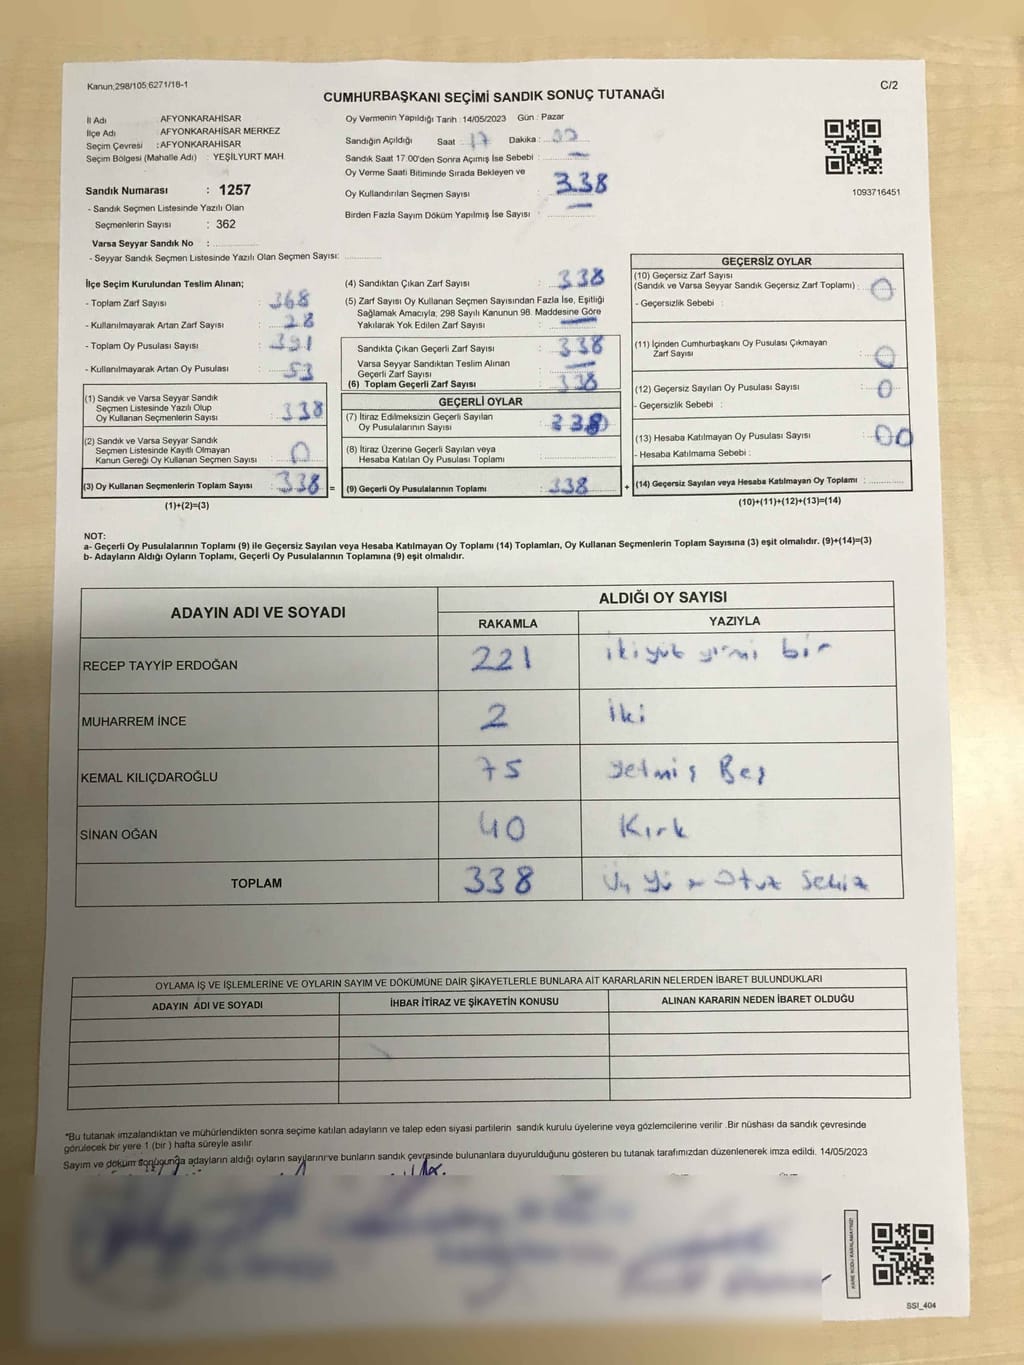 Kanun,298/105;6271/18-1
C/2
CUMHURBAŞKANI SEÇİMİ SANDIK SONUÇ TUTANAĞI
İl Adı : AFYONKARAHİSAR
İlçe Adı : AFYONKARAHİSAR MERKEZ
Seçim Çevresi : AFYONKARAHİSAR
Seçim Bölgesi (Mahalle Adı) : YEŞİLYURT MAH.
Sandık Numarası : 1257
- Sandık Seçmen Listesinde Yazılı Olan
Seçmenlerin Sayısı : 362
Varsa Seyyar Sandık No :
- Seyyar Sandık Seçmen Listesinde Yazılı Olan Seçmen Sayısı:
Oy Vermenin Yapıldığı Tarih : 14/05/2023 Gün : Pazar
Sandığın Açıldığı Saat : 17 Dakika :
Sandık Saat 17.00'den Sonra Açılmış İse Sebebi : —
Oy Verme Saati Bitiminde Sırada Bekleyen ve
Oy Kullandırılan Seçmen Sayısı : 338
Birden Fazla Sayım Döküm Yapılmış İse Sayısı : —
1093716451
İlçe Seçim Kurulundan Teslim Alınan;
- Toplam Zarf Sayısı : 368
- Kullanılmayarak Artan Zarf Sayısı : 28
- Toplam Oy Pusulası Sayısı : 391
- Kullanılmayarak Artan Oy Pusulası : 53
(1) Sandık ve Varsa Seyyar Sandık
Seçmen Listesinde Yazılı Olup
Oy Kullanan Seçmenlerin Sayısı : 338
(2) Sandık ve Varsa Seyyar Sandık
Seçmen Listesinde Kayıtlı Olmayan
Kanun Gereği Oy Kullanan Seçmen Sayısı : 0
(3) Oy Kullanan Seçmenlerin Toplam Sayısı : 338 =
(1)+(2)=(3)
(4) Sandıktan Çıkan Zarf Sayısı : 338
(5) Zarf Sayısı Oy Kullanan Seçmen Sayısından Fazla İse, Eşitliği
Sağlamak Amacıyla; 298 Sayılı Kanunun 98. Maddesine Göre
Yakılarak Yok Edilen Zarf Sayısı : —
Sandıkta Çıkan Geçerli Zarf Sayısı : 338
Varsa Seyyar Sandıktan Teslim Alınan
Geçerli Zarf Sayısı : —
(6) Toplam Geçerli Zarf Sayısı : 338
GEÇERLİ OYLAR
(7) İtiraz Edilmeksizin Geçerli Sayılan
Oy Pusulalarının Sayısı : 338
(8) İtiraz Üzerine Geçerli Sayılan veya
Hesaba Katılan Oy Pusulası Toplamı :
(9) Geçerli Oy Pusulalarının Toplamı : 338 +
GEÇERSİZ OYLAR
(10) Geçersiz Zarf Sayısı
(Sandık ve Varsa Seyyar Sandık Geçersiz Zarf Toplamı) : 0
- Geçersizlik Sebebi :
(11) İçinden Cumhurbaşkanı Oy Pusulası Çıkmayan
Zarf Sayısı : 0
(12) Geçersiz Sayılan Oy Pusulası Sayısı : 0
- Geçersizlik Sebebi :
(13) Hesaba Katılmayan Oy Pusulası Sayısı : 00
- Hesaba Katılmama Sebebi :
(14) Geçersiz Sayılan veya Hesaba Katılmayan Oy Toplamı :
(10)+(11)+(12)+(13)=(14)
NOT:
a- Geçerli Oy Pusulalarının Toplamı (9) ile Geçersiz Sayılan veya Hesaba Katılmayan Oy Toplamı (14) Toplamları, Oy Kullanan Seçmenlerin Toplam Sayısına (3) eşit olmalıdır. (9)+(14)=(3)
b- Adayların Aldığı Oyların Toplamı, Geçerli Oy Pusulalarının Toplamına (9) eşit olmalıdır.
ADAYIN ADI VE SOYADI
ALDIĞI OY SAYISI
RAKAMLA YAZIYLA
RECEP TAYYİP ERDOĞAN 221 ikiyüz yirmi bir
MUHARREM İNCE 2 İki
KEMAL KILIÇDAROĞLU 75 yetmiş Beş
SİNAN OĞAN 40 Kırk
TOPLAM 338 Üç yüz Otuz Sekiz
OYLAMA İŞ VE İŞLEMLERİNE VE OYLARIN SAYIM VE DÖKÜMÜNE DAİR ŞİKAYETLERLE BUNLARA AİT KARARLARIN NELERDEN İBARET BULUNDUKLARI
ADAYIN ADI VE SOYADI İHBAR İTİRAZ VE ŞİKAYETİN KONUSU ALINAN KARARIN NEDEN İBARET OLDUĞU
*Bu tutanak imzalandıktan ve mühürlendikten sonra seçime katılan adayların ve talep eden siyasi partilerin sandık kurulu üyelerine veya gözlemcilerine verilir .Bir nüshası da sandık çevresinde
görülecek bir yere 1 (bir ) hafta süreyle asılır.
Sayım ve döküm sonucunda adayların aldığı oyların sayılarını ve bunların sandık çevresinde bulunanlara duyurulduğunu gösteren bu tutanak tarafımızdan düzenlenerek imza edildi. 14/05/2023
KARE KODU KARALAMAYINIZ!
SSI_404